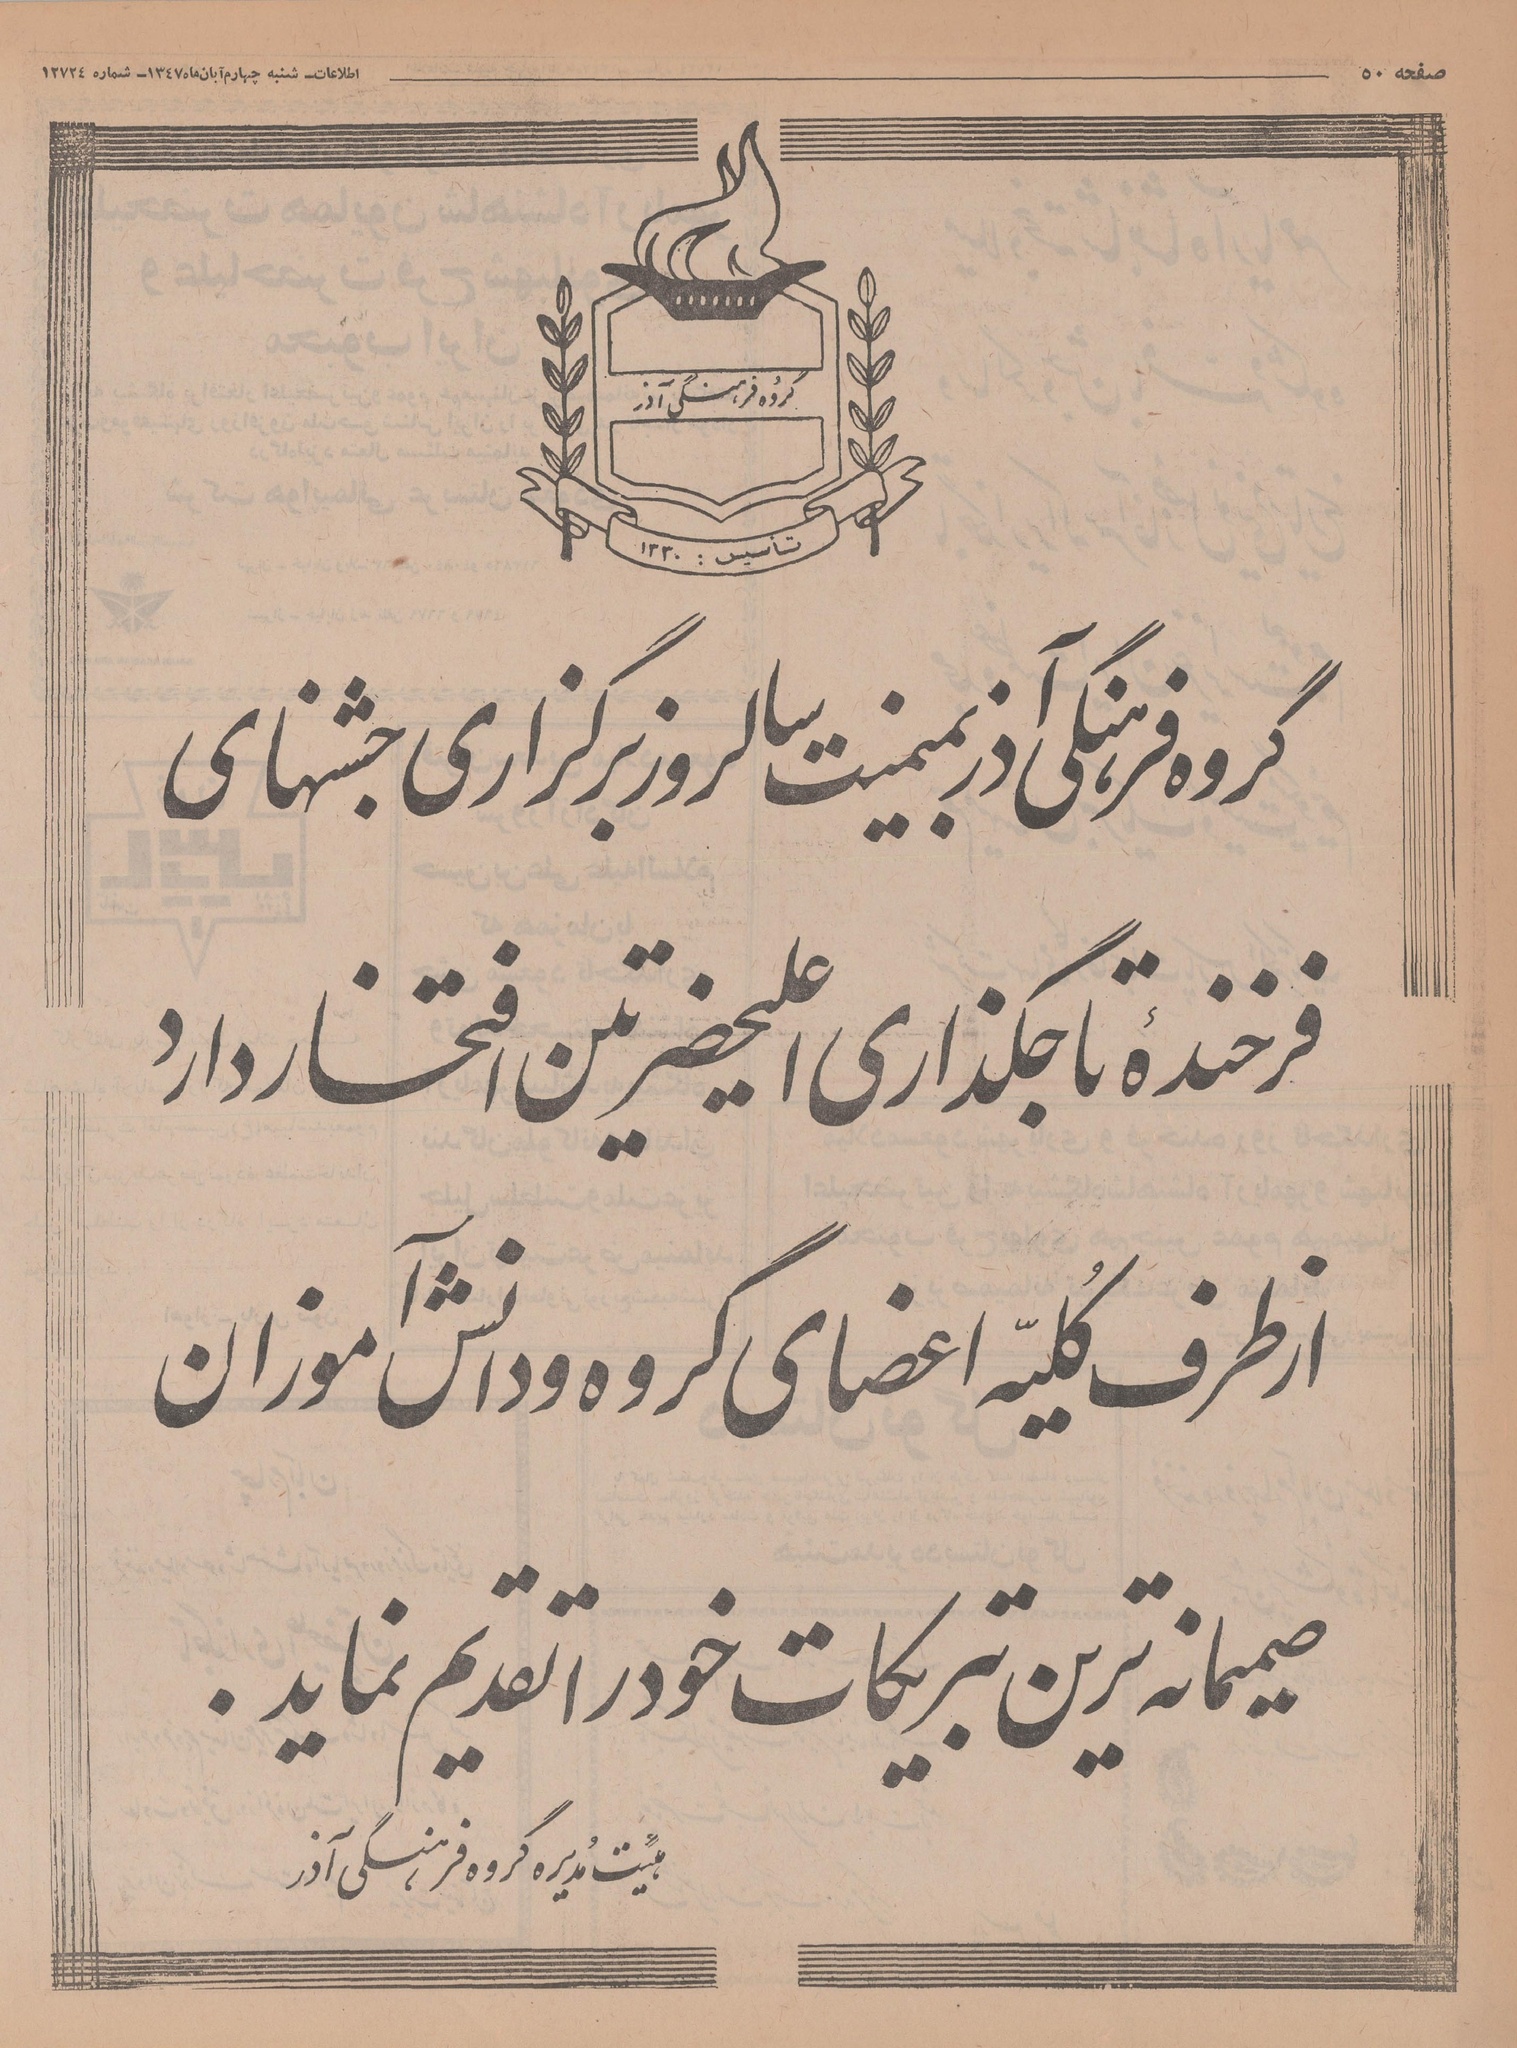 صفحه ۵۰
اطلاعات ـ شنبه چهارم آبان ماه ۱۳۴۷ ـ شماره ۱۲۷۲۴
گروه فرهنگی آذر
تأسیس : ۱۳۳۰
گروه فرهنگی آذر بمیمنت سالروز برگزاری جشنهای
فرخندهٔ تاجگذاری اعلیحضرتین افتخار دارد
از طرف کُلیّه اعضای گروه و دانش آموزان
صمیمانه ترین تبریکات خود را تقدیم نماید .
هیئت مُدیره گروه فرهنگی آذر